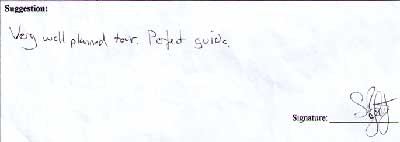 Suggestion:
Very well planned tour. Pefect guide.
Signature: